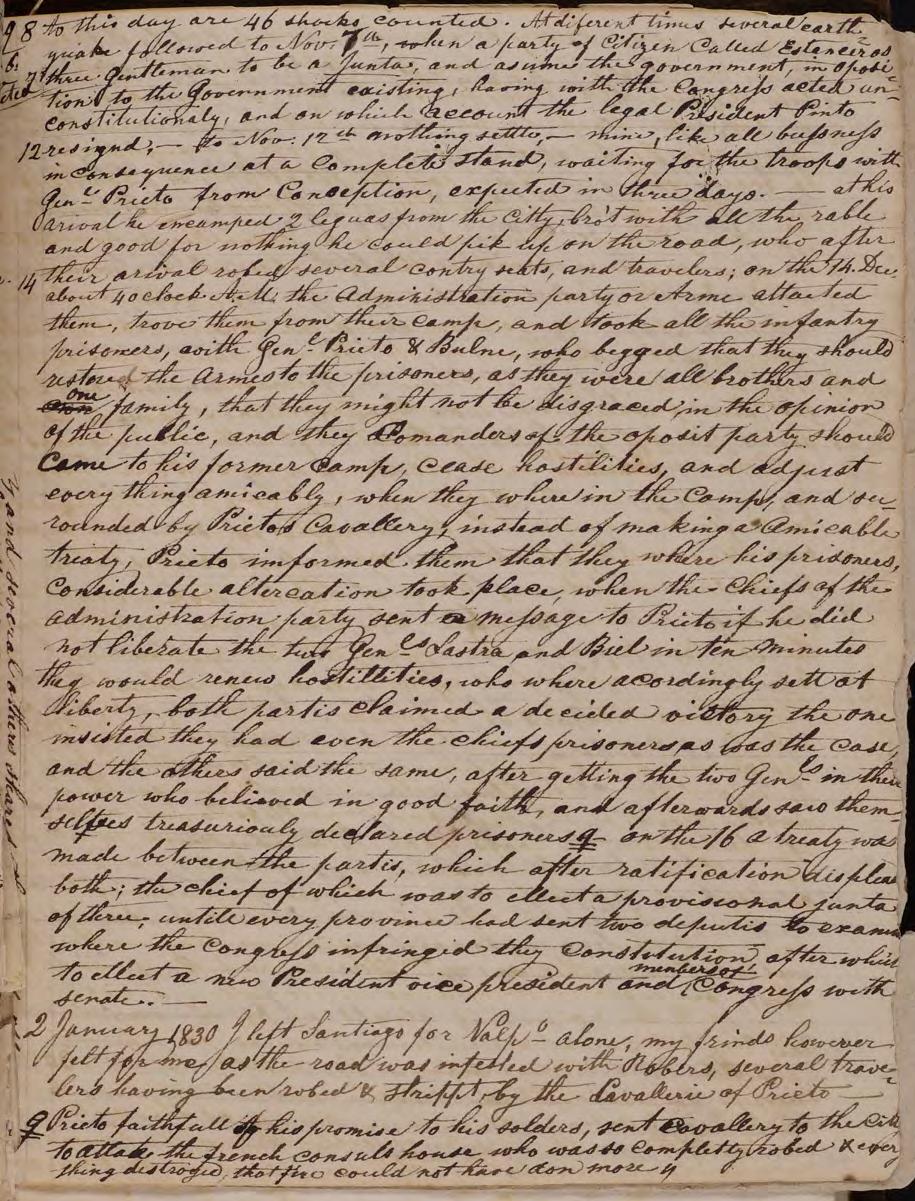 98 to this day are 46 shocks counted. At diferent times several earth-
quake followed to Nov. 7th, when a party of Citizen Called Estenceros
three Gentleman to be a Junta, and asume the government, in oposi-
tion to the Government existing, having with the Congress acted un-
constitutionaly, and on which account the legal President Pinto
12 resignd, — to Nov. 12th nothing settle, — mine, like all bussness
in consequence at a Complete stand, waiting for the troops with
Genl Prieto from Conception, expected in three days. — at his
arival he encamped 2 leguas from the Citty, bro't with all the rable
and good for nothing he could pik up on the road, who after
14 their arival robed several contry seats, and travelers; on the 14. Dec.
about 4 oclock A.M. the Administration party or Arme attacted
them, trove them from their camp, and took all the infantry
prisoners, with Genl Prieto & Bulne, who begged that they should
restore the Armes to the prisoners, as they were all brothers and
one family, that they might not be disgraced in the opinion
of the public, and they Comanders of the oposit party should
Came to his former Camp, cease hostilities, and adjust
every thing amicably, when they where in the Camp, and sur-
rounded by Prietos Cavallery, instead of making a Amicable
treaty, Prieto imformed them that they where his prisoners,
Considerable altercation took place, when the Chiefs of the
administration party sent a message to Prieto if he did
not liberate the two Genls Lastra and Biel in ten minutes
they would renew hostillities, who where acordingly sett at
liberty, both partis claimed a decided victory the one
insisted they had even the chiefs prisoners as was the case,
and the others said the same, after getting the two Genls in their
power who believed in good faith, and afterwards saw them-
selfes treasuriouly declared prisoners q on the 16 a treaty was
made between the partis, which after ratification displea
both; the chief of which was to ellect a provisional junta
of three, untile every province had sent two deputis to exami
where the Congress infringed they Constitution, after which
to ellect a new President vice president and members of Congress with
senate. —
2 January 1830 I left Santiago for Valpo alone, my frinds however
felt for me, as the road was infested with Robers, several trave-
lers having been robed & stript, by the Cavallerie of Prieto —
q Prieto faithfull of his promise to his solders, sent Cavallery to the Citt
to attack the french consuls house who was so completly robed & every
thing distroyed, that fire could not have don more q
Y and several others shares